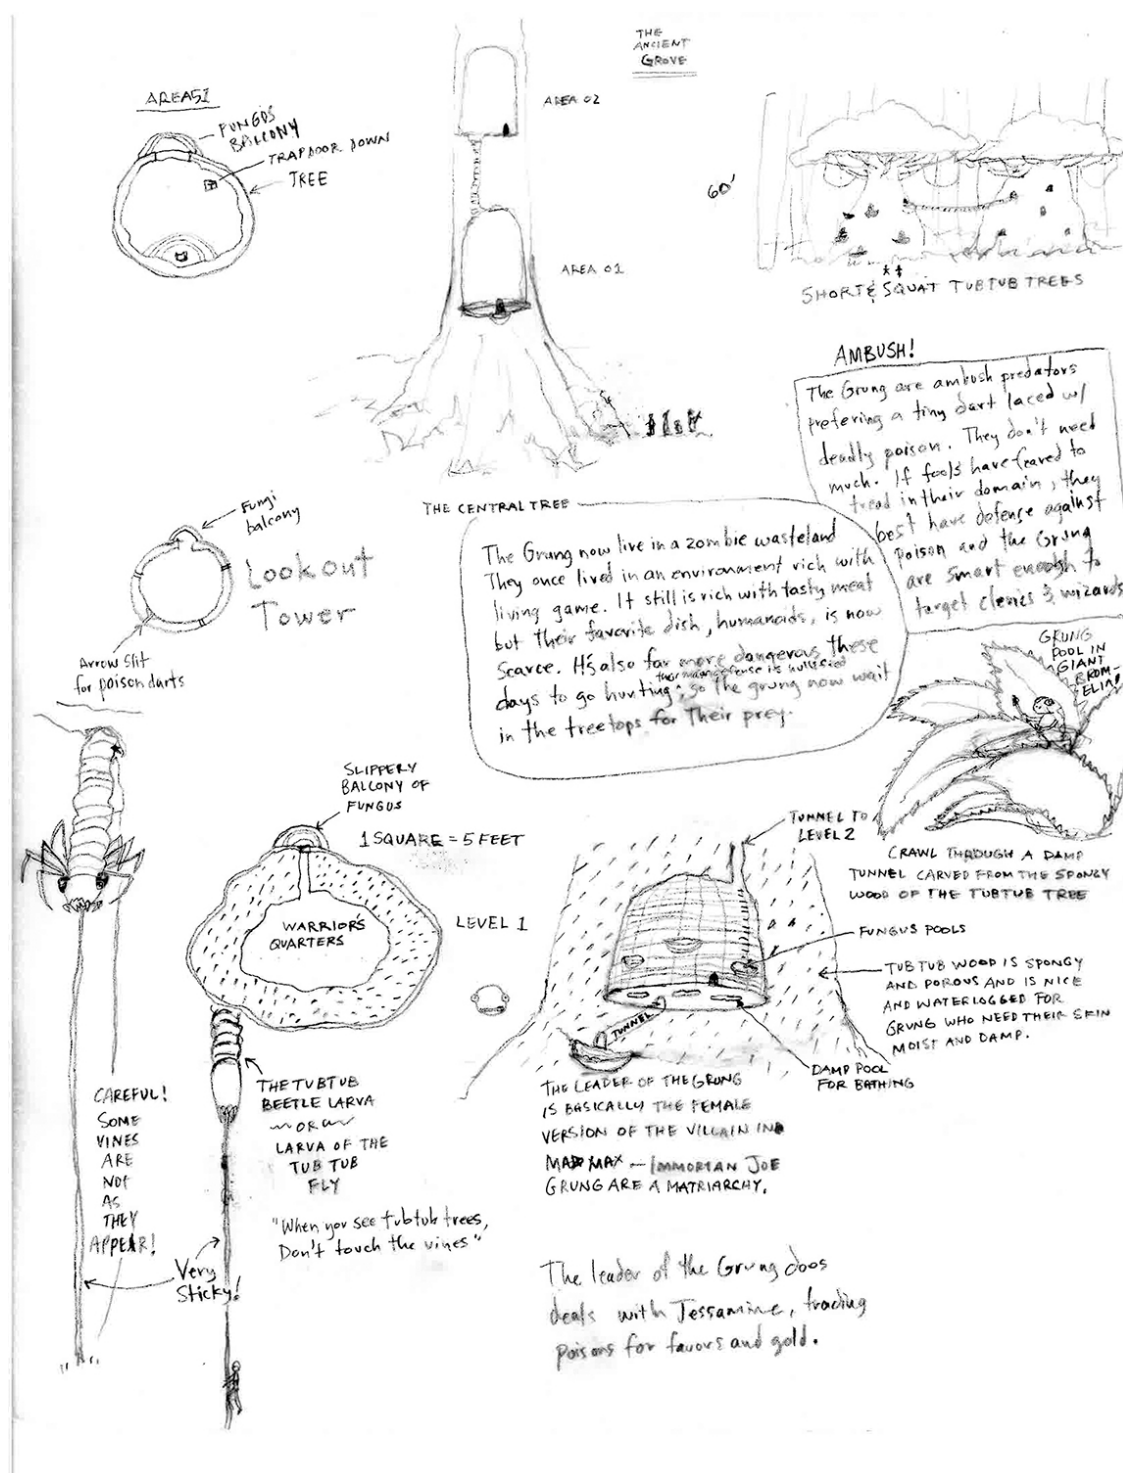 THE
ANCIENT
GROVE
AREA 51
FUNGUS
BALCONY
TRAPDOOR DOWN
TREE
AREA 02
AREA 01
60'
SHORT & SQUAT TUBTUB TREES
AMBUSH!
The Grung are ambush predators
prefering a tiny dart laced w/
deadly poison. They don't need
much. If fools have feared to
tread in their domain, they
best have defense against
poison and the Grung
are smart enough to
target clerics & wizards
THE CENTRAL TREE
The Grung now live in a zombie wasteland
They once lived in an environment rich with
living game. It still is rich with tasty meat
but their favorite dish, humanoids, is now
scarce. It's also far more dangerous these
their main defense is nullified
days to go hunting; so the grung now wait
in the treetops for their prey.
Fungi
balcony
Lookout
Tower
Arrow Slit
for poison darts
GRUNG
POOL IN
GIANT
BROM-
ELIA!
CRAWL THROUGH A DAMP
TUNNEL CARVED FROM THE SPONGY
WOOD OF THE TUBTUB TREE
SLIPPERY
BALCONY OF
FUNGUS
1 SQUARE = 5 FEET
WARRIOR'S
QUARTERS
LEVEL 1
TUNNEL TO
LEVEL 2
FUNGUS POOLS
TUBTUB WOOD IS SPONGY
AND POROUS AND IS NICE
AND WATERLOGGED FOR
GRUNG WHO NEED THEIR SKIN
MOIST AND DAMP.
TUNNEL
DAMP POOL
FOR BATHING
THE LEADER OF THE GRUNG
IS BASICALLY THE FEMALE
VERSION OF THE VILLAIN IN
MAD MAX — IMMORTAN JOE
GRUNG ARE A MATRIARCHY.
CAREFUL!
SOME
VINES
ARE
NOT
AS
THEY
APPEAR!
THE TUBTUB
BEETLE LARVA
~OR~
LARVA OF THE
TUB TUB
FLY
"When you see tubtub trees,
Don't touch the vines"
Very
Sticky!
The leader of the Grung does
deals with Jessamine, trading
poisons for favors and gold.